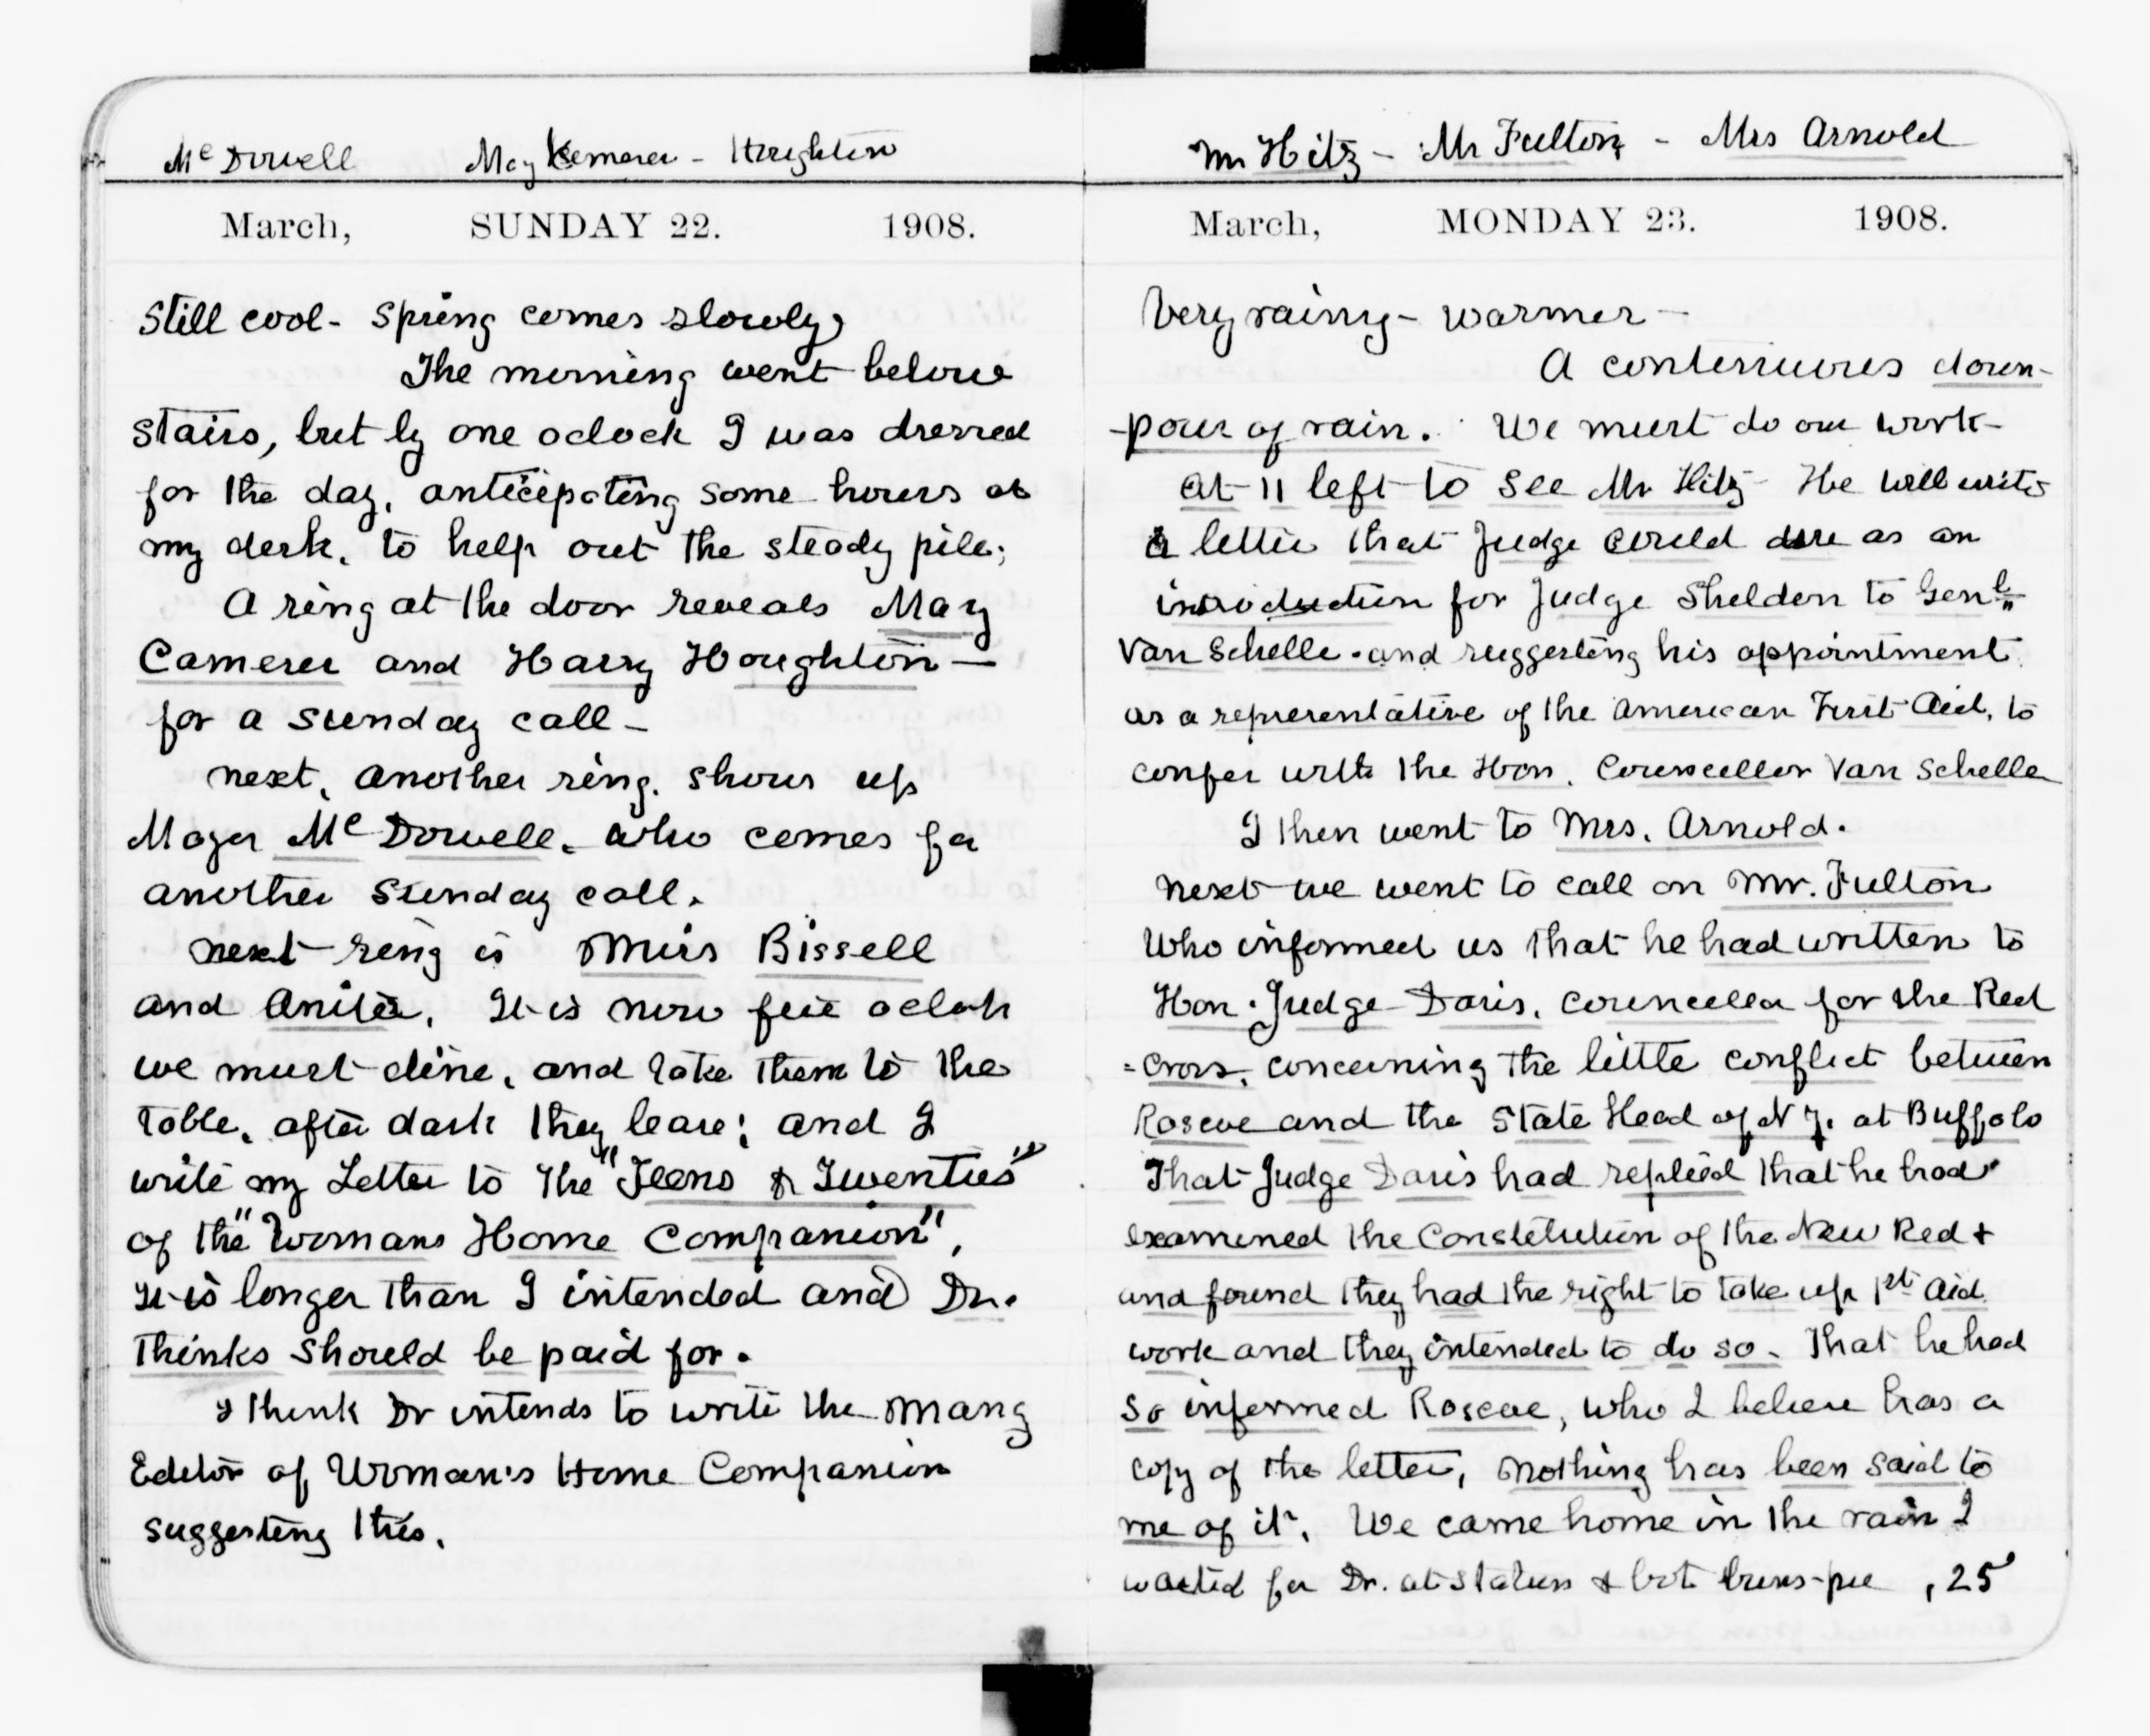 McDowell May Kemerer - Houghton
March, SUNDAY 22. 1908.
Still cool - Spring comes slowly,
The morning went below
stairs, but by one oclock I was dressed
for the day, anticipating some hours at
my desk, to help out the steady pile;
A ring at the door reveals May
Camerer and Harry Houghton —
for a Sunday call -
next, another ring. shows up
Mayer McDowell, who comes for
another Sunday call.
next ring is Miss Bissell
and Anita, It is now five oclok
we must dine, and take them to the
table, after dark they leave; and I
write my Letter to the "Teens & Twenties"
of the "Womans Home Companion",
It is longer than I intended and Dr.
thinks should be paid for.
I think Dr intends to write the Mang
Editor of Woman's Home Companion
suggesting this.
Mr Hitz - Mr Fulton - Mrs Arnold
March, MONDAY 23. 1908.
Very rainy - warmer —
A continuous down-
-pour of rain. We must do our work -
At 11 left to see Mr Hitz - He will write
a letter that Judge could use as an
introduction for Judge Sheldon to Genl
Van Schelle - and suggesting his appointment
as a representative of the American First Aid, to
confer with the Hon. Councellor Van Schelle
I then went to Mrs. Arnold.
next we went to call on Mr. Fulton
Who informed us that he had written to
Hon. Judge Davis, councellor for the Red
=Cross, concerning the little conflict between
Roscoe and the State Head of N Y. at Buffolo
That Judge Davis had replied that he had
examined the Constitution of the New Red +
and found they had the right to take up 1st Aid
work and they intended to do so. That he had
so informed Roscoe, who I believe has a
copy of the letter, nothing has been said to
me of it, We came home in the rain I
waited for Dr. at station & bot buns-pie ,25